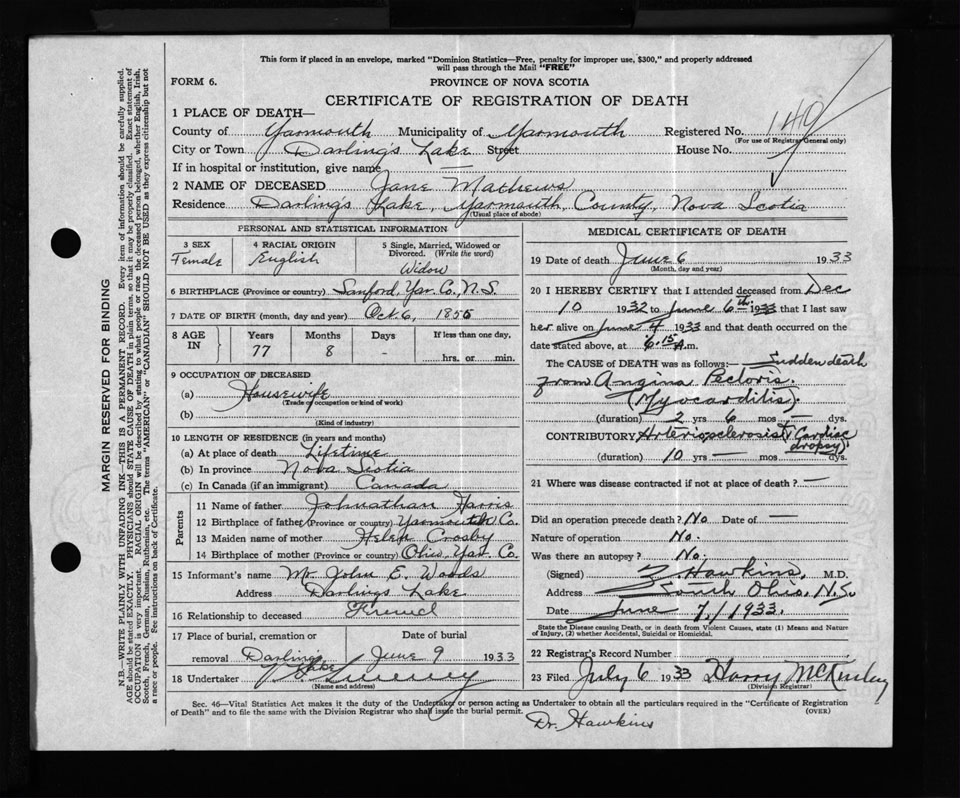 This form if placed in an envelope, marked "Dominion Statistics—Free, penalty for improper use, $300," and properly addressed
will pass through the Mail "FREE"
FORM 6.
PROVINCE OF NOVA SCOTIA
CERTIFICATE OF REGISTRATION OF DEATH
1 PLACE OF DEATH—
County of Yarmouth Municipality of Yarmouth Registered No. 149
(For use of Registrar General only)
City or Town Darlings Lake Street House No.
If in hospital or institution, give name —
2 NAME OF DECEASED Jane Mathews
Residence Darlings Lake, Yarmouth County, Nova Scotia
(Usual place of abode)
PERSONAL AND STATISTICAL INFORMATION
3 SEX 4 RACIAL ORIGIN 5 Single, Married, Widowed or
Divorced. (Write the word)
Female English Widow
6 BIRTHPLACE (Province or country) Sanford, Yar. Co., N.S.
7 DATE OF BIRTH (month, day and year) Oct. 6, 1855
8 AGE IN Years Months Days If less than one day,
77 8 - hrs. or min.
9 OCCUPATION OF DECEASED
(a) Housewife
(Trade or occupation or kind of work)
(b)
(Kind of industry)
10 LENGTH OF RESIDENCE (in years and months)
(a) At place of death Lifetime
(b) In province Nova Scotia
(c) In Canada (if an immigrant) Canada
Parents
11 Name of father Johnathan Harris
12 Birthplace of father (Province or country) Yarmouth Co.
13 Maiden name of mother Helen Crosby
14 Birthplace of mother (Province or country) Ohio, Yar. Co.
15 Informant's name Mr. John E. Woods
Address Darlings Lake
16 Relationship to deceased Friend
17 Place of burial, cremation or Date of burial
removal Darlings Lake June 9 1933
18 Undertaker Sweeney
(Name and address)
MEDICAL CERTIFICATE OF DEATH
19 Date of death June 6 1933
(Month, day and year)
20 I HEREBY CERTIFY that I attended deceased from Dec
10 1932 to June 6th 1933 that I last saw
her alive on June 4 1933 and that death occurred on the
date stated above, at 6.15 A.m.
The CAUSE OF DEATH was as follows: Sudden death
from Angina Pectoris.
(Myocarditis).
(duration) 2 yrs 6 mos — dys.
CONTRIBUTORY Arteriosclerosis (& Cardiac
dropsy)
(duration) 10 yrs — mos dys.
21 Where was disease contracted if not at place of death? —
Did an operation precede death? No Date of —
Nature of operation No.
Was there an autopsy? No.
(Signed) Z. Hawkins, M.D.
Address South Ohio, N.S.
Date June 7/1933.
State the Disease causing Death, or in death from Violent Causes, state (1) Means and Nature
of Injury, (2) whether Accidental, Suicidal or Homicidal.
22 Registrar's Record Number
23 Filed July 6 1933 Harry McKinley
(Division Registrar)
Sec. 46—Vital Statistics Act makes it the duty of the Undertaker or person acting as Undertaker to obtain all the particulars required in the "Certificate of Registration
of Death" and to file the same with the Division Registrar who shall issue the burial permit. (OVER)
Dr. Hawkins
MARGIN RESERVED FOR BINDING
N.B.—WRITE PLAINLY WITH UNFADING INK—THIS IS A PERMANENT RECORD. Every item of information should be carefully supplied.
AGE should be stated EXACTLY. PHYSICIANS should STATE CAUSE OF DEATH in plain terms, so that it may be properly classified. Exact statement of
OCCUPATION is very important. RACIAL ORIGIN will be described by stating to what people or race the deceased person belonged, whether English, Irish,
Scotch, French, German, Russian, Ruthenian, etc. The terms "AMERICAN" or "CANADIAN" SHOULD NOT BE USED as they express citizenship but not
a race or people. See instructions on back of Certificate.